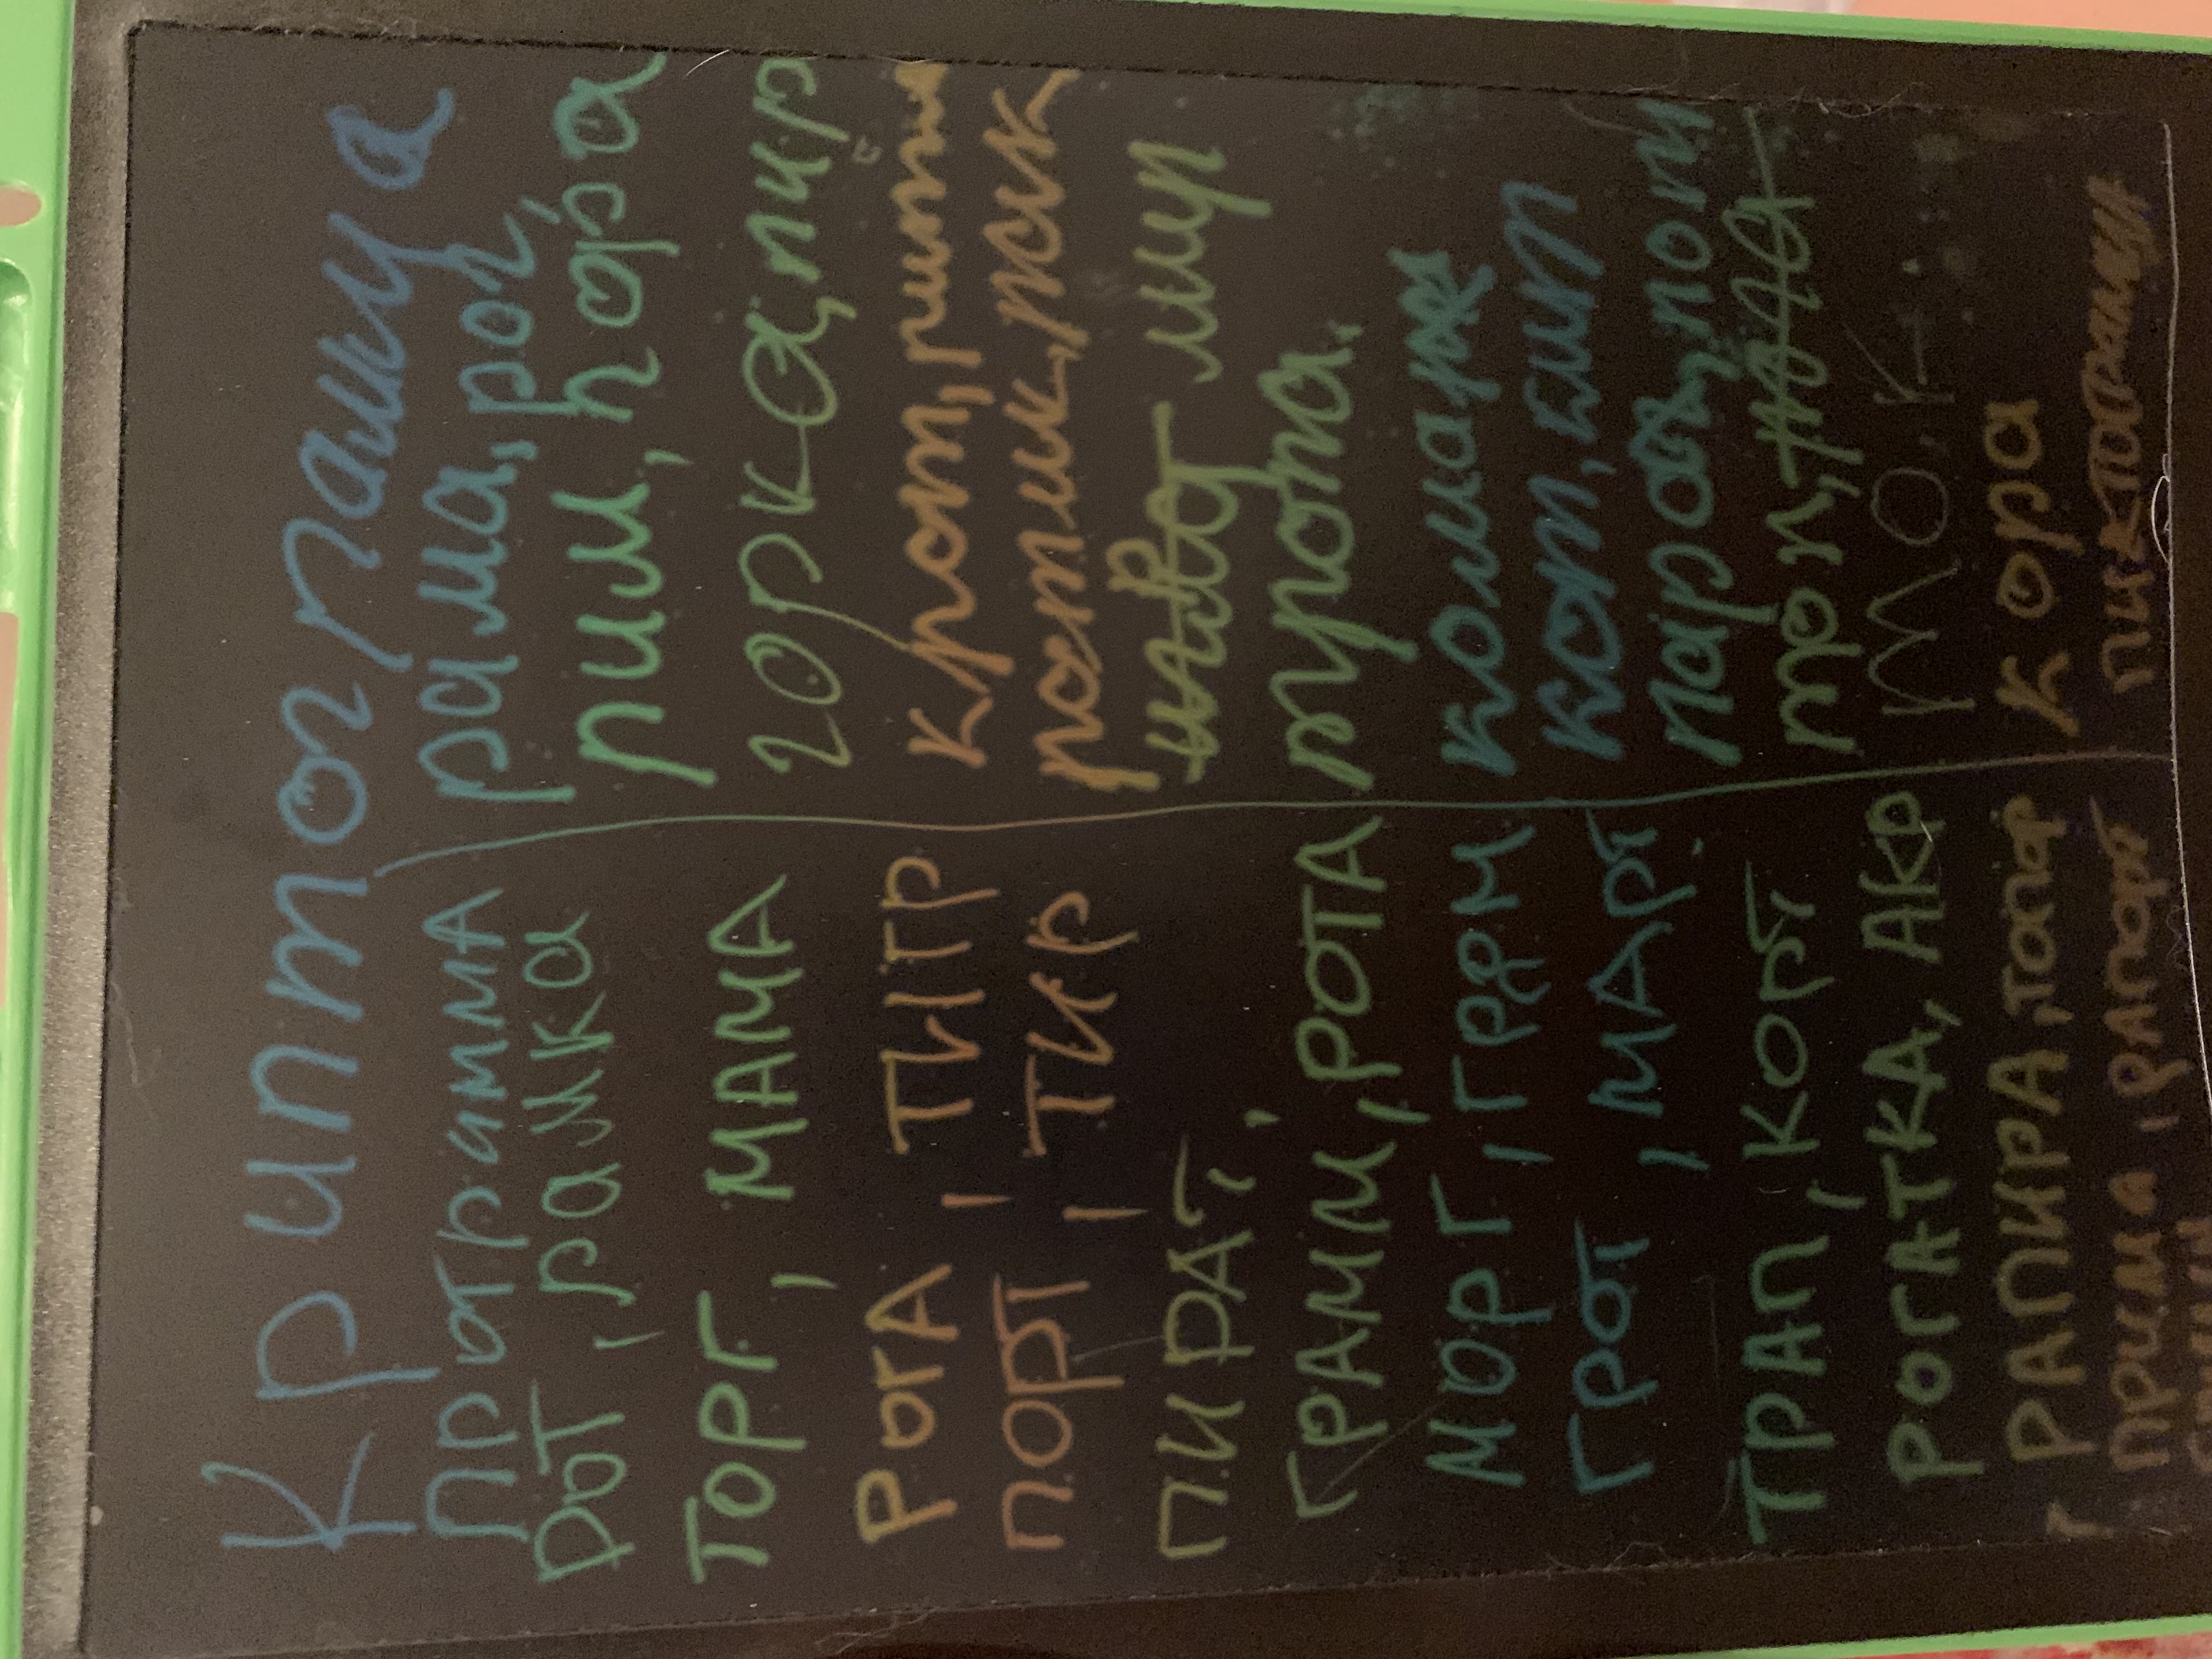 Криптограмма
ПрограммА
РОТ, рамка
ТОРГ, МАМА
РогА, ТИГР
ПОРТ, ТИР
ПИРАТ,
ГРАММ, РОТА
МОРГ, ГРОМ
ГРОТ, МАРТ
ТРАП, КОРТ
РОГАТКА, АКР
РАПИРА, топор
прима, рапорт
рама, рог,
рим, гора
горка, пир
крот, ритм
ротик, рак
мир
тропа.
комар
кот, кит
парок, пот
топ,
ток
кора
пиктограмма